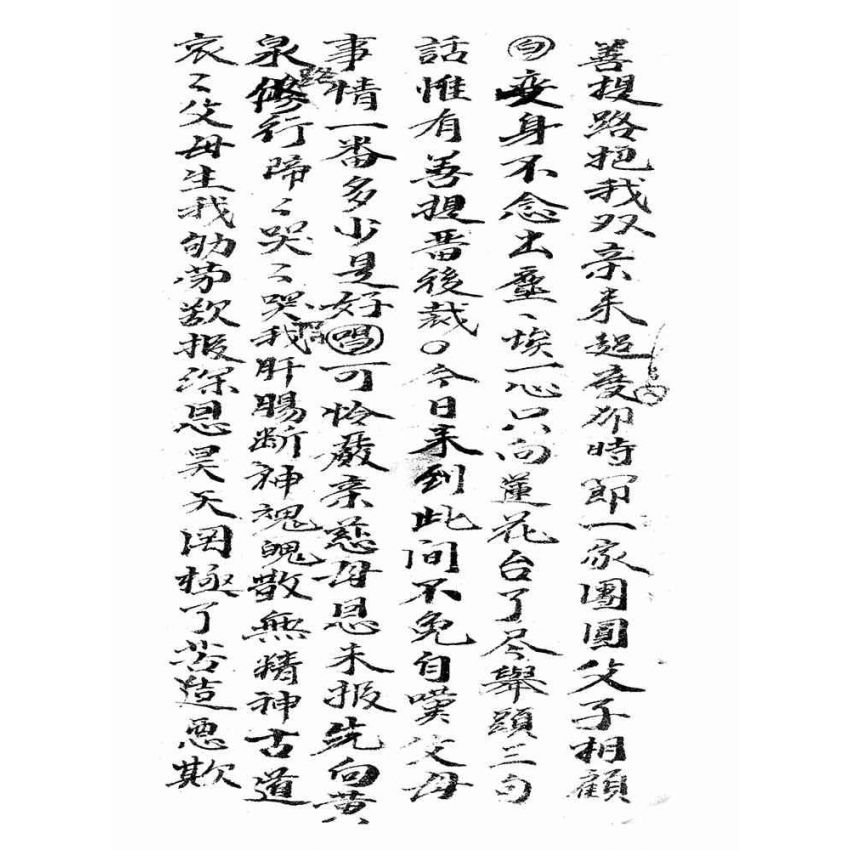 善提路把我双亲来超度那時節一家團圓父子相顧
白変身不念出塵々埃一心只向蓮花台了尽舉頭三句
話惟有善提番後裁〇今日来到此间不免自嘆父母
事情一番多少是好唱可怜嚴亲慈母恩未报先向黄
泉路修行啼々哭々哭得我肝腸断神魂魄散無精神古道
哀々父母生我劬劳欲报深恩昊天罔極了苦造悪欺